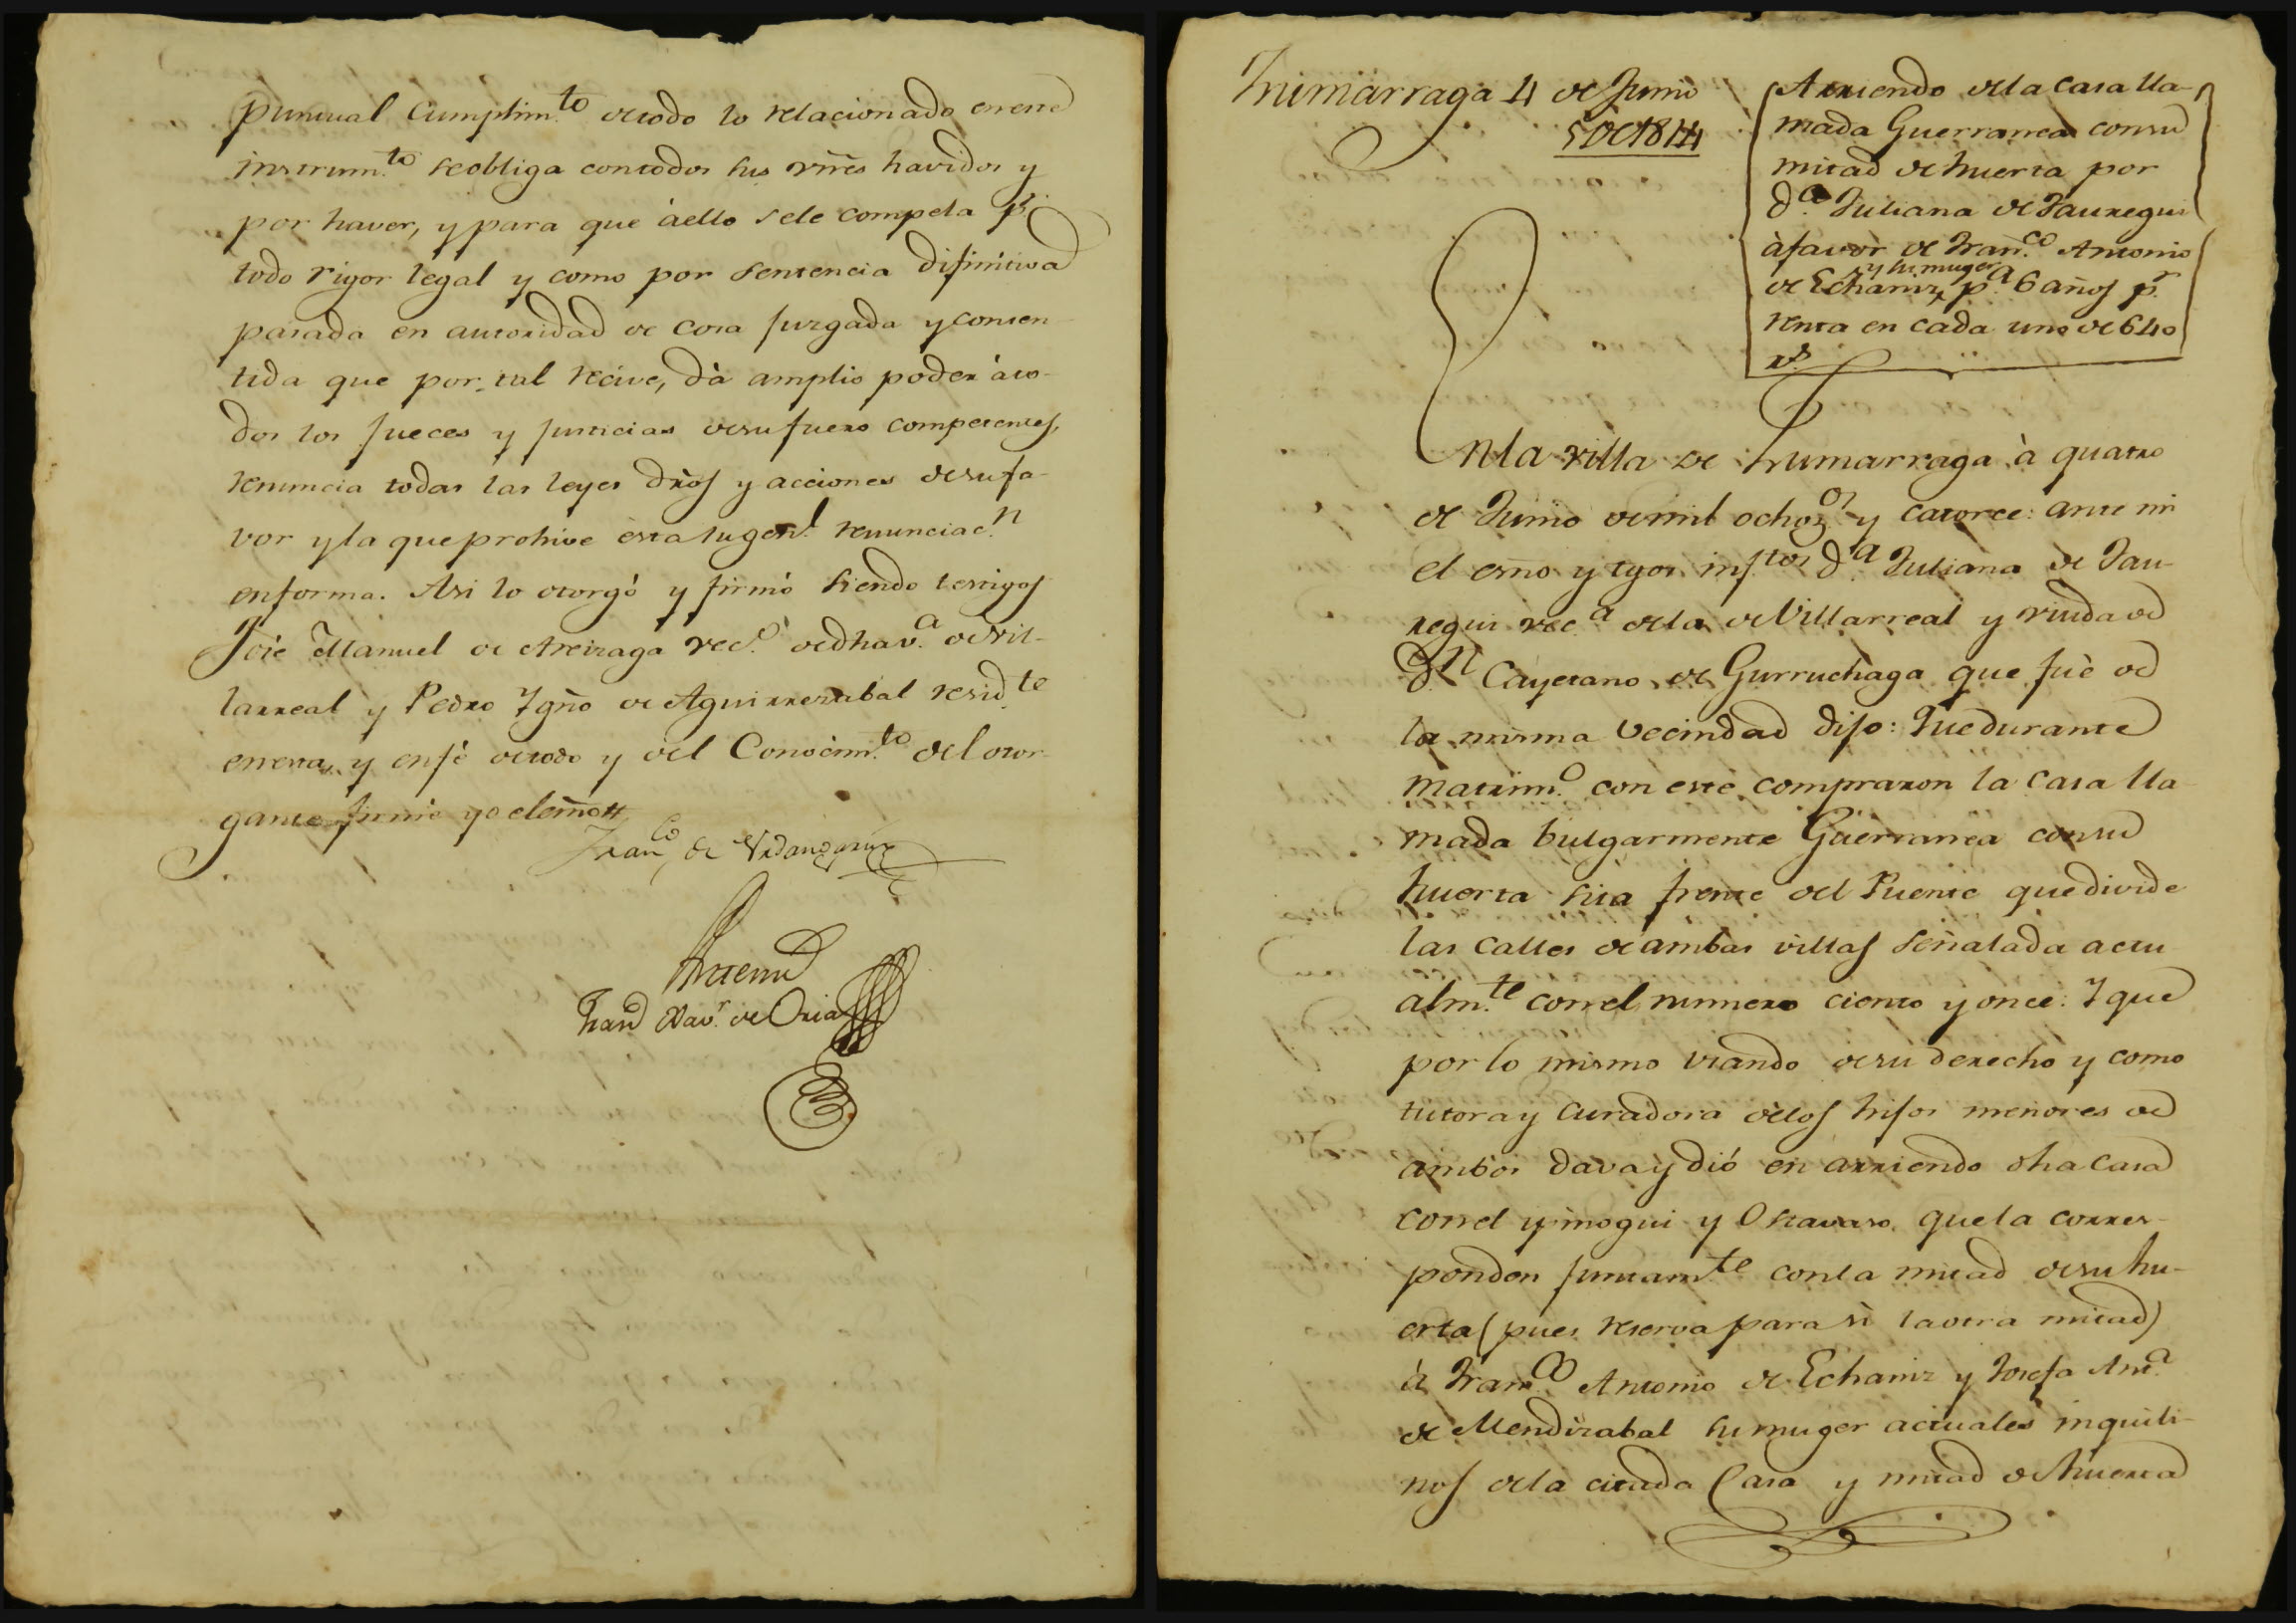 puntual Cumplim.to de todo lo relacionado en este
instrum.to se obliga con todos sus vñes havidos y
por haver, y para que à ello se le compela p.r
todo rigor legal y como por sentencia difinitiva
pasada en autoridad de cosa juzgada y consen-
tida que por tal recive, dà amplio poder à to-
dos los jueces y justicias de su fuero competentes,
renuncia todas las leyes dros y acciones de su fa-
vor y la que prohive esta su gen.l renunciac.n
en forma. Asi lo otorgó y firmó siendo testigos
José Manuel de Areizaga vec.o de dha v.a de Vil-
larreal y Pedro Ygño de Aguirrezabal resid.te
en esta, y en fé de todo y del Conocim.to del otor-
gante firmé yo el esño
Fran.co de
Ante mi
Fran.co Xav.r de Oria
Zumarraga 4 de Junio
de 1814
Arriendo de la casa lla-
mada Guerranea con su
mitad de huerta por
d.a Juliana de Jauregui
à favor de Fran.co Antonio
y su muger
de Echaniz, p.a 6 años p.r
renta en cada uno de 640
r.s
En la villa de Zumarraga à quatro
de Junio de mil ochoz.os y catorce: ante mi
el esño y tgos inf.tos d.a Juliana de Jau-
regui vec.a de la de Villarreal y viuda de
d.n Cayetano de Gurruchaga que fué de
la misma vecindad dijo: Que durante
matrim.o con este compraron la casa lla-
mada bulgarmente Guerranea con su
huerta sita frente del Puente que divide
las calles de ambas villas señalada actu-
alm.te con el numero ciento y once: Y que
por lo mismo usando de su derecho y como
tutora y curadora de los hijos menores de
ambos dava y dió en arriendo dha casa
con el y
y que la corres-
ponden juntam.te con la mitad de su hu-
erta (pues reserva para sì la otra mitad)
à Fran.co Antonio de Echaniz y Josefa Ant.a
de Mendizabal su muger actuales inquili-
nos de la citada Casa y mitad de huerta